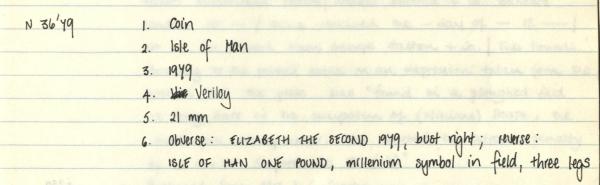 N 36'79 1. Coin
2. Isle of Man
3. 1979
4. Veriloy
5. 21 mm
6. Obverse: ELIZABETH THE SECOND 1979, bust right; reverse:
ISLE OF MAN ONE POUND, millenium symbol in field, three legs